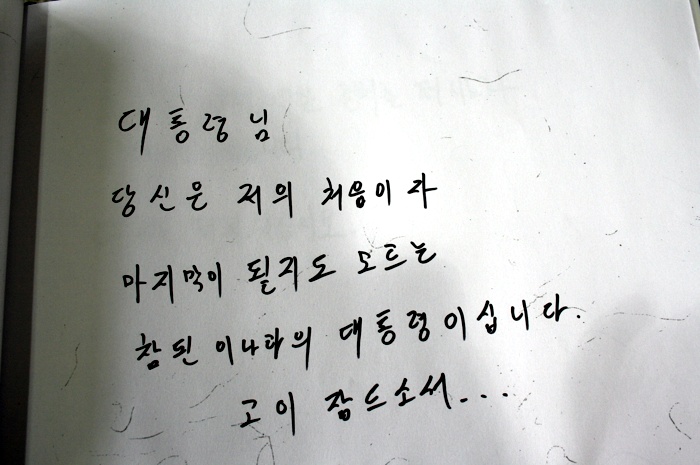 대통령님
당신은 저의 처음이자
마지막이 될지도 모르는
참된 이나라의 대통령이십니다.
고이 잠드소서...